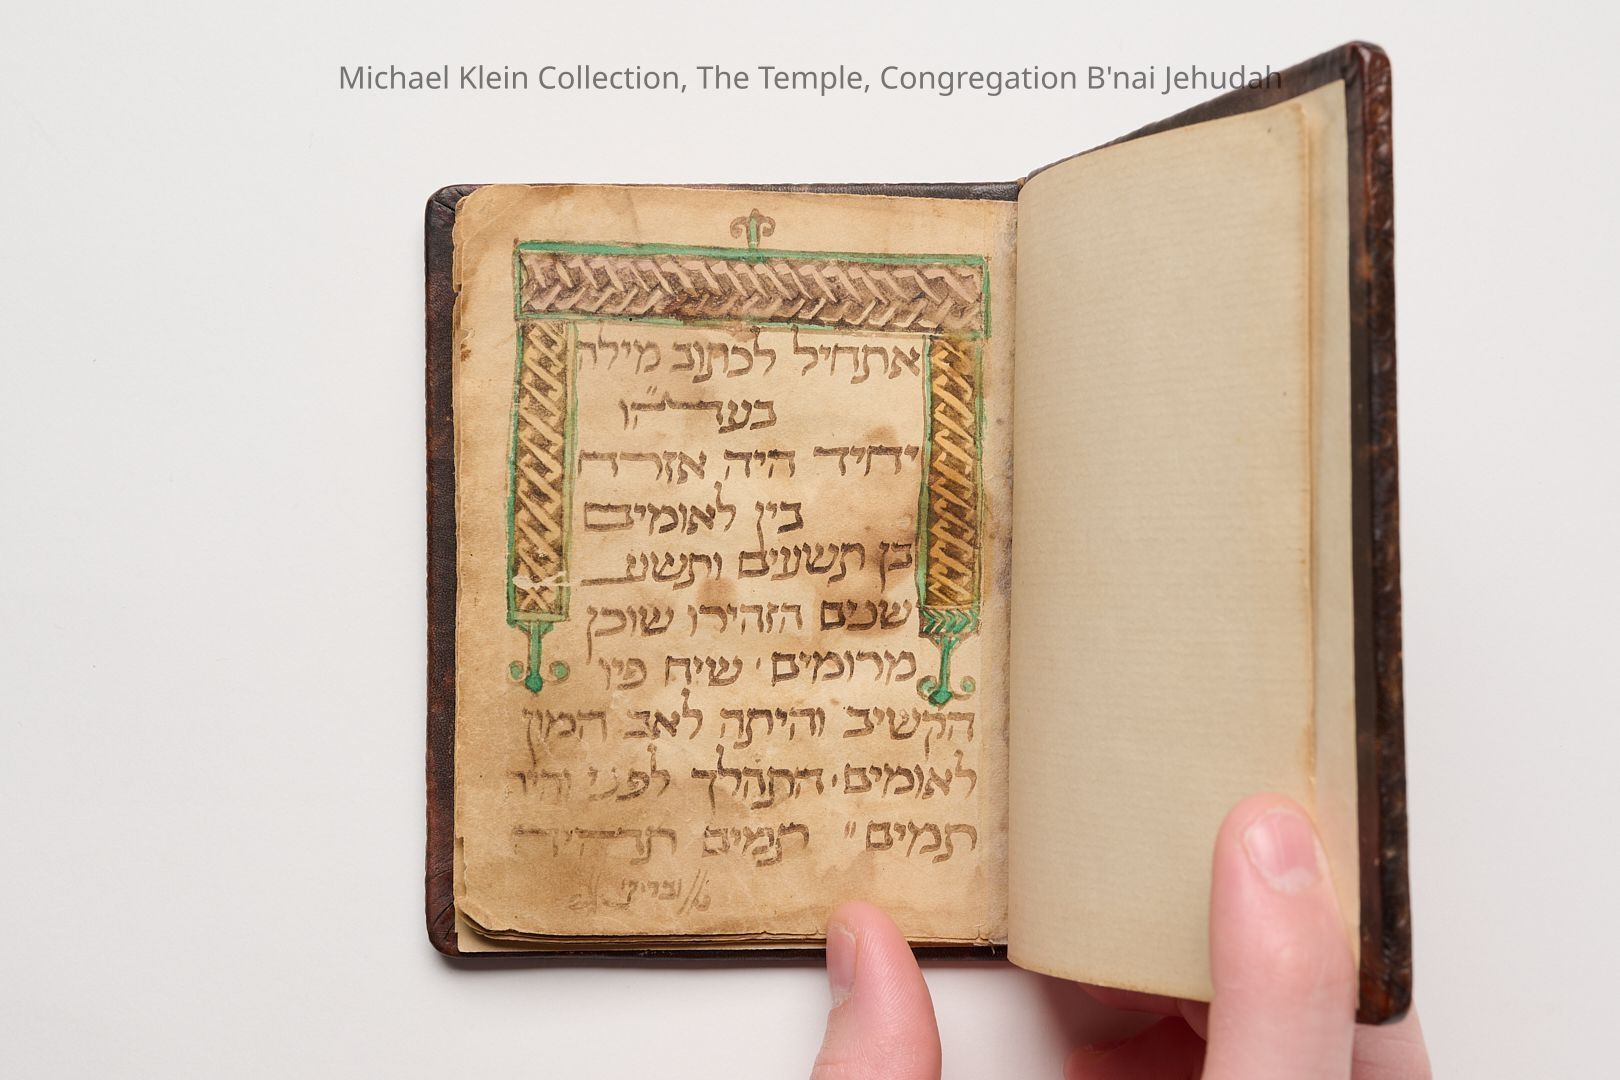 Michael Klein Collection, The Temple, Congregation B'nai Jehudah
אתחיל לכתוב מילה
יחיד היה אזרח
בין לאומים
בן תשעים ותשע
שנים הזהירו שוכן
מרומים שיח פיו
הקשיב והיתה לאב המון
לאומים התהלך לפני והיה
תמים" תמים תהיה